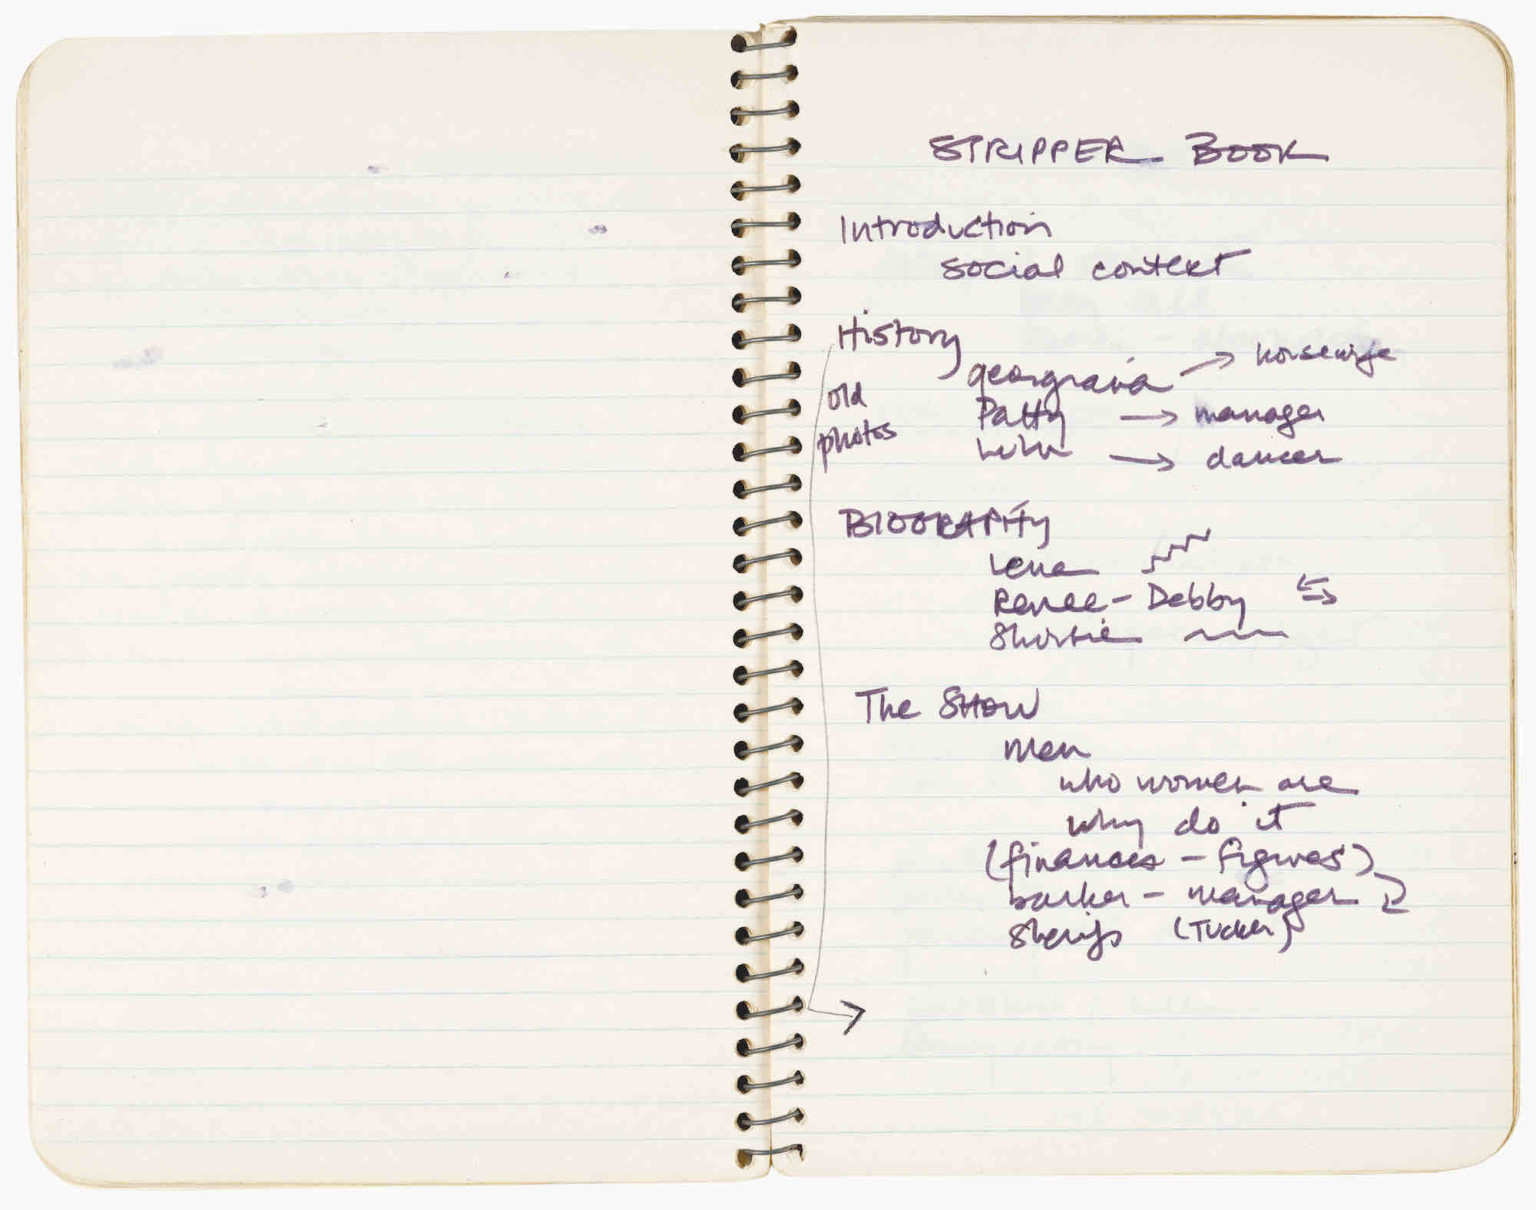 STRIPPER BOOK
Introduction
social context
History
georgiana → housewife
old
Patty → manager
photos
Lulu → dancer
BIOGRAPHY
Lena
Renee - Debby
Shortie
The SHOW
men
who women are
why do it
(finances - figures)
barker - manager
Sheriffs (Tucker)